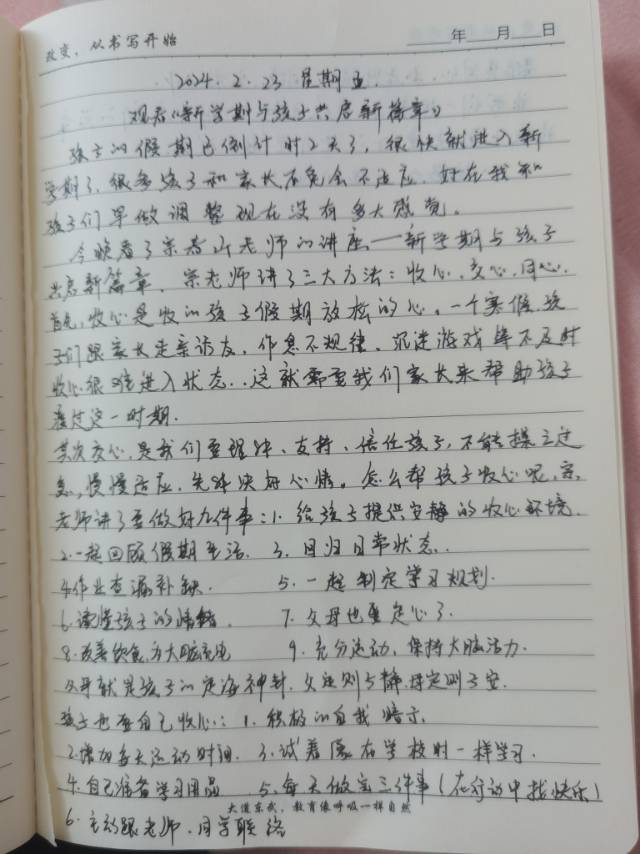 改变，从书写开始 年 月 日
2024.2.23 星期五.
观看《新学期与孩子共启新篇章》
孩子的假期已倒计时2天了，很快就进入新
学期了，很多孩子和家长不免会不适应，好在我和
孩子们早做调整现在没有多大感觉。
今晚看了宗春山老师的讲座——新学期与孩子
共启新篇章，宗老师讲了三大方法：收心，交心，同心.
首先，收心是收回孩子假期放松的心。一个寒假，孩
子们跟家长走亲访友，作息不规律，沉迷游戏等不及时
收心很难进入状态，这就需要我们家长来帮助孩子
度过这一时期.
其次交心，是我们要理解、支持、信任孩子，不能操之过
急，慢慢适应，先解决好心情。怎么帮孩子收心呢，宗
老师讲了要做好九件事：1.给孩子提供安静的收心环境.
2.一起回顾假期生活. 3.回归日常状态.
4.作业查漏补缺. 5.一起制定学习规划.
6.读懂孩子的情绪. 7.父母也要定心了.
8.改善饮食，为大脑充电 9.充分运动，保持大脑活力.
父母就是孩子的定海神针，父定则子静，母定则子安.
孩子也要自己收心：1.积极的自我暗示
2.增加每天运动时间. 3.试着像在学校时一样学习.
4.自己准备学习用品 5.每天做完三件事（在行动中找快乐）
大道东武，教育像呼吸一样自然
6.主动跟老师、同学联络